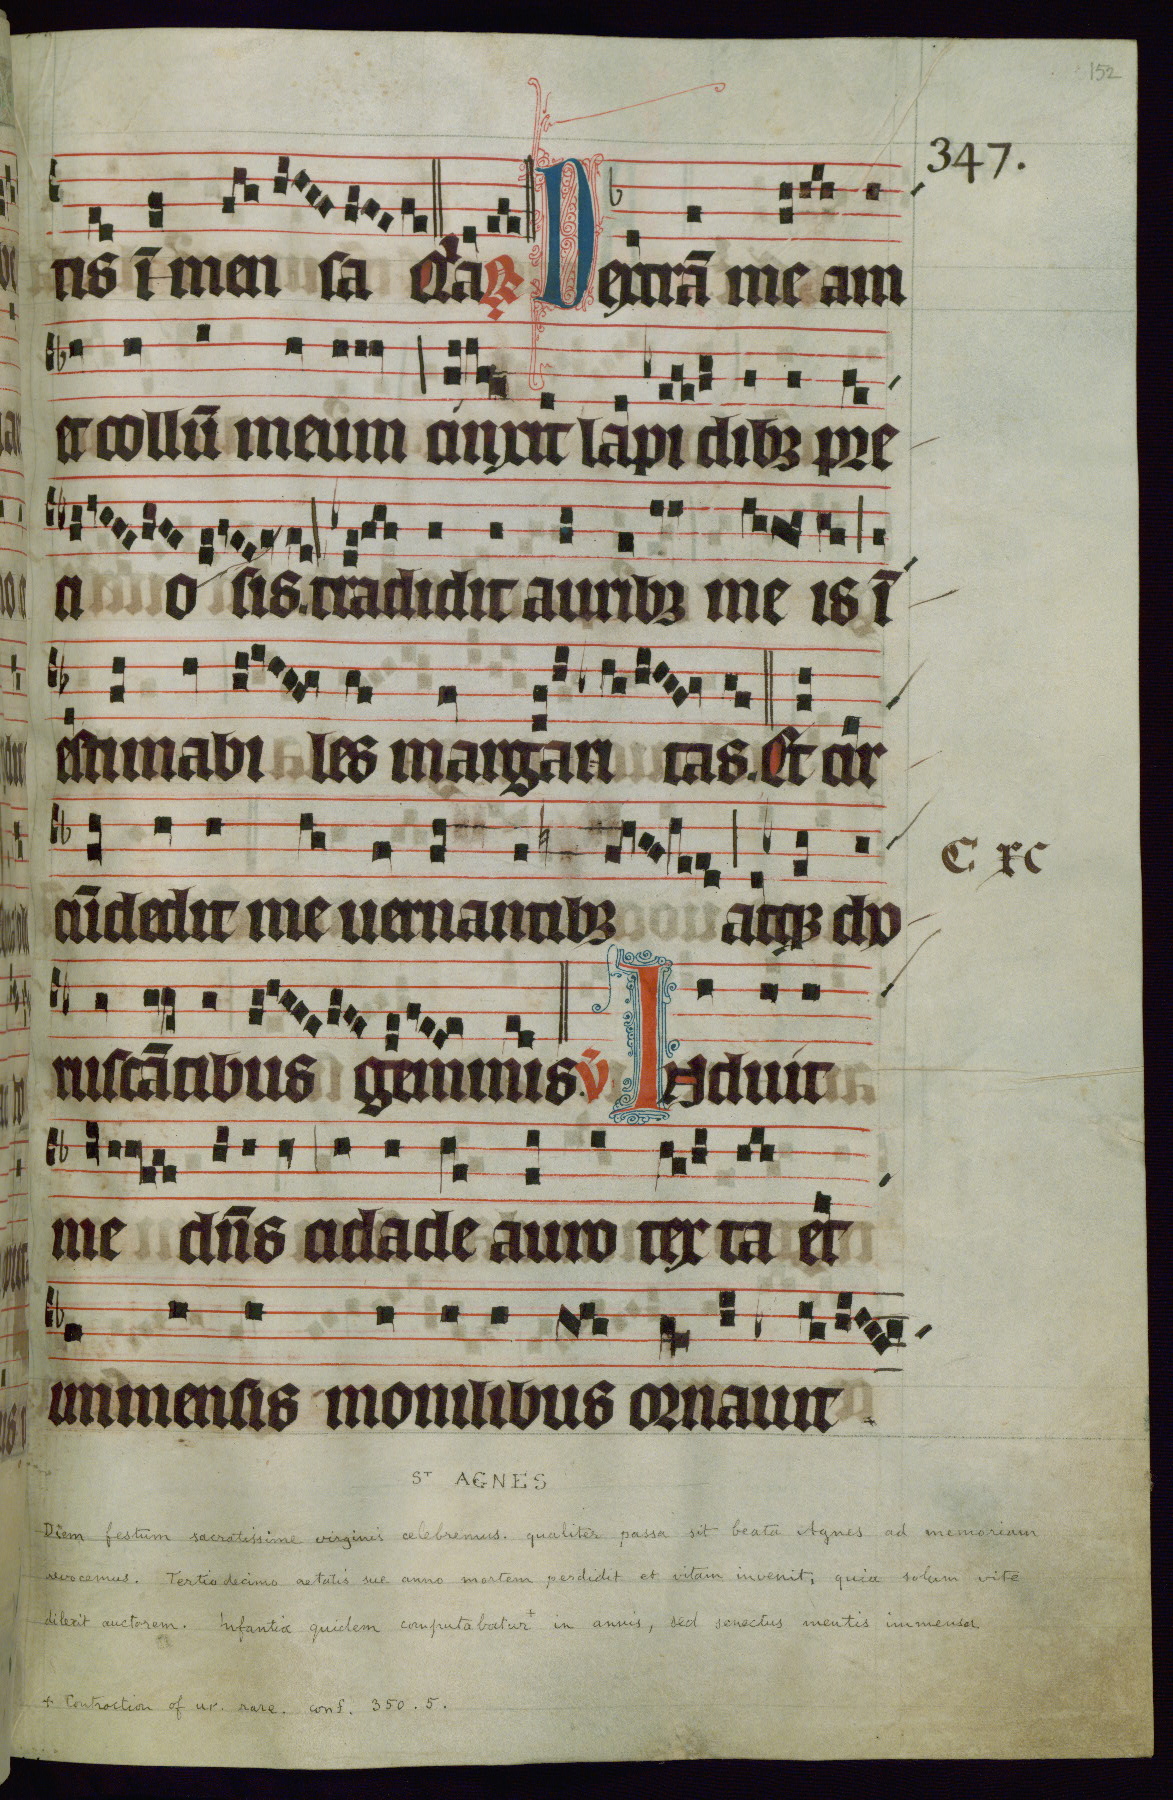 152
347.
tis ī men sa Q̄ia ꝶ Dextrā me am
et collū meum cinxit lapi dibꝫ pre
ci o sis. tradidit auribꝫ me is ī
estimabi les margari tas. Et cir
cūdedit me uernantibꝫ atqꝫ cho
C xc
ruscātibus gemmis. v̄ Induit
me dn̄s ciclade auro tex ta et
immensis monilibus ornauit
ST AGNES
Diem festum sacratissime virginis celebremus. qualiter passa sit beata Agnes ad memoriam
revocemus. Tertio decimo aetatis sue anno mortem perdidit et vitam invenit, quia solum vite
dilexit auctorem. Infantia quidem computabatur+ in annis, sed senectus mentis immensa
+ Contraction of ur. rare. conf. 350.5.